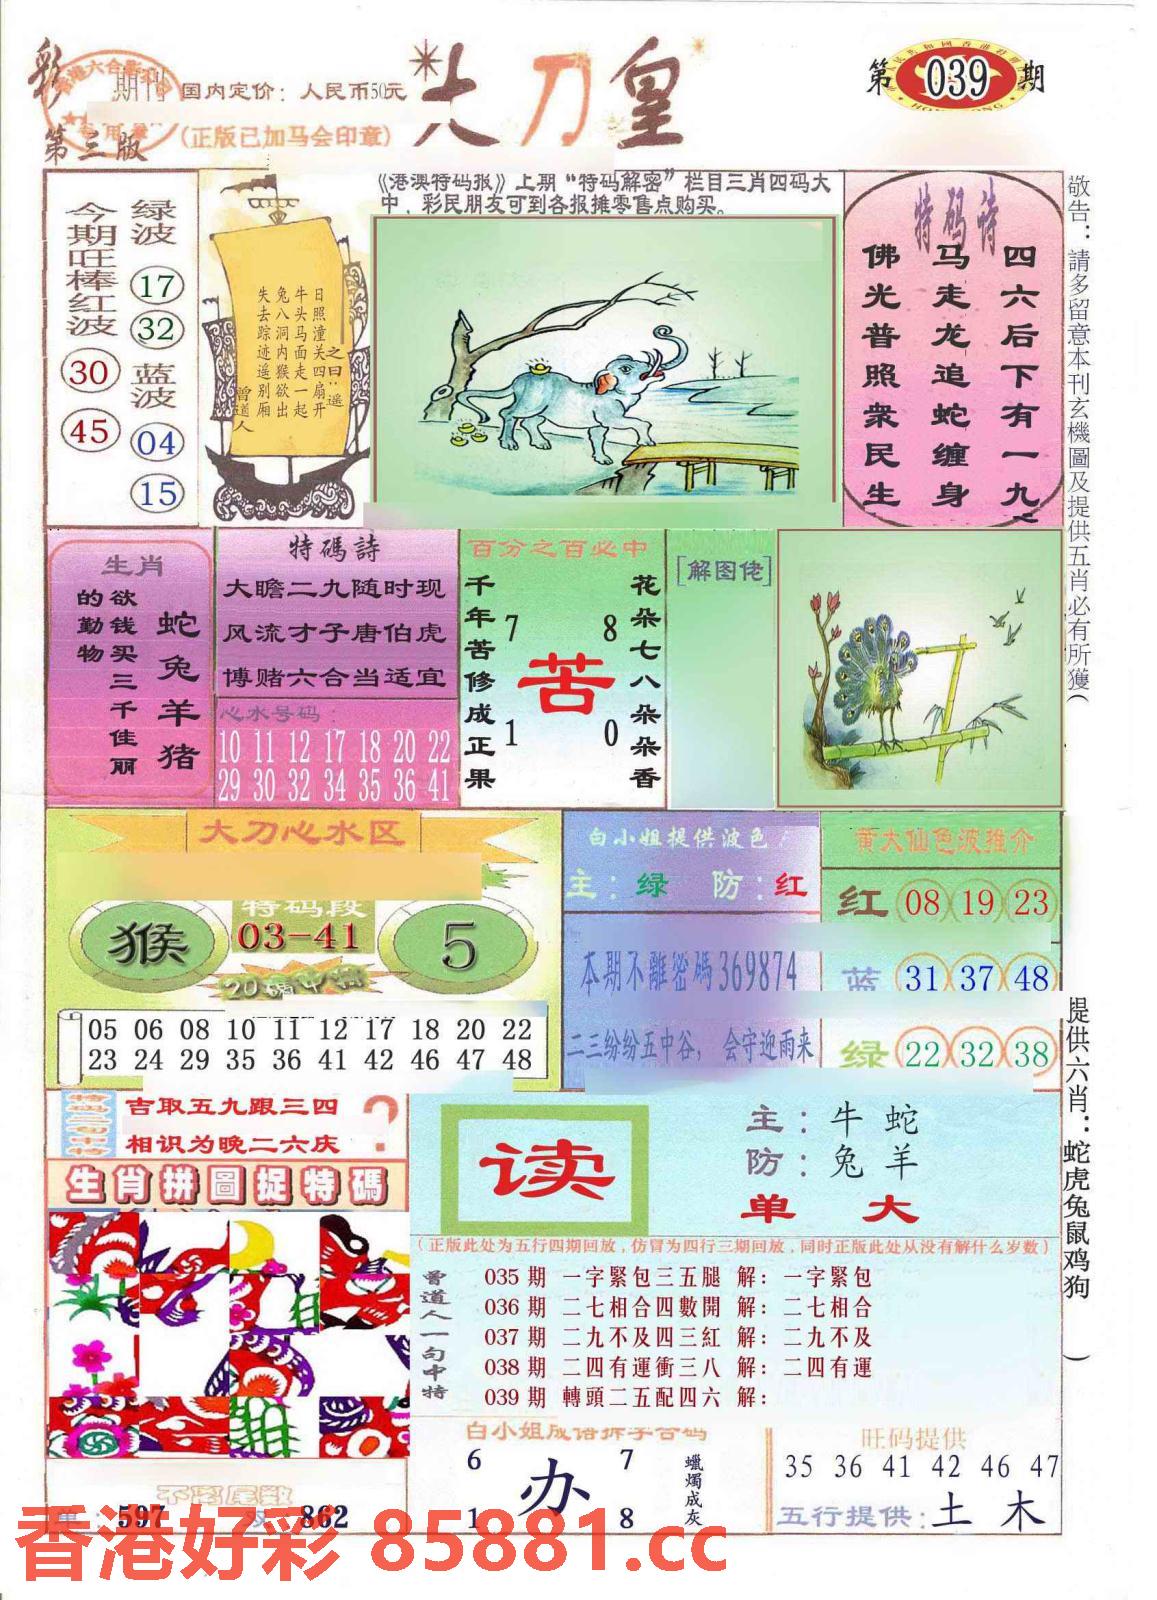 彩 期刊
第三版
国内定价：人民币50元
(正版已加马会印章)
大刀皇
第 039 期
《港澳特码报》上期“特码解密”栏目三肖四码大
中，彩民朋友可到各报摊零售点购买。
今期旺棒红波
30
45
绿波
17
32
蓝波
04
15
之曰：遥
日照潼关四扇开
牛头马面走一起
兔八洞内猴欲出
失去踪迹遥别厢
曾道人
特码诗
四六后下有一九
马走龙追蛇缠身
佛光普照衆民生
敬告：請多留意本刊玄機圖及提供五肖必有所獲(
提供六肖：蛇虎兔鼠鸡狗 )
生肖
欲钱买三千佳丽
的勤物
蛇兔羊猪
特碼詩
大瞻二九随时现
风流才子唐伯虎
博赌六合当适宜
心水号码：
10 11 12 17 18 20 22
29 30 32 34 35 36 41
百分之百必中
千年苦修成正果
7 8
苦
1 0
花朵七八朵朵香
[解图佬]
大刀心水区
猴
特码段
03-41
5
20碼中特
05 06 08 10 11 12 17 18 20 22
23 24 29 35 36 41 42 46 47 48
白小姐提供波色
主：绿 防：红
本期不離密碼369874
二三纷纷五中谷，会守迎雨来
黄大仙色波推介
红 08 19 23
蓝 31 37 48
绿 22 32 38
吉取五九跟三四
相识为晚二六庆
?
生肖拼圖捉特碼
读
主：牛 蛇
防：兔 羊
单 大
(正版此处为五行四期回放，仿冒为四行三期回放，同时正版此处从没有解什么岁数)
曾道人一句中特
035 期 一字緊包三五腿 解：一字緊包
036 期 二七相合四數開 解：二七相合
037 期 二九不及四三紅 解：二九不及
038 期 二四有運衝三八 解：二四有運
039 期 轉頭二五配四六 解：
白小姐成语拆字合码
6 7
办
1 8
蠟燭成灰
旺码提供
35 36 41 42 46 47
五行提供：土 木
不离尾数
单：597 双：862
香港好彩 85881.cc